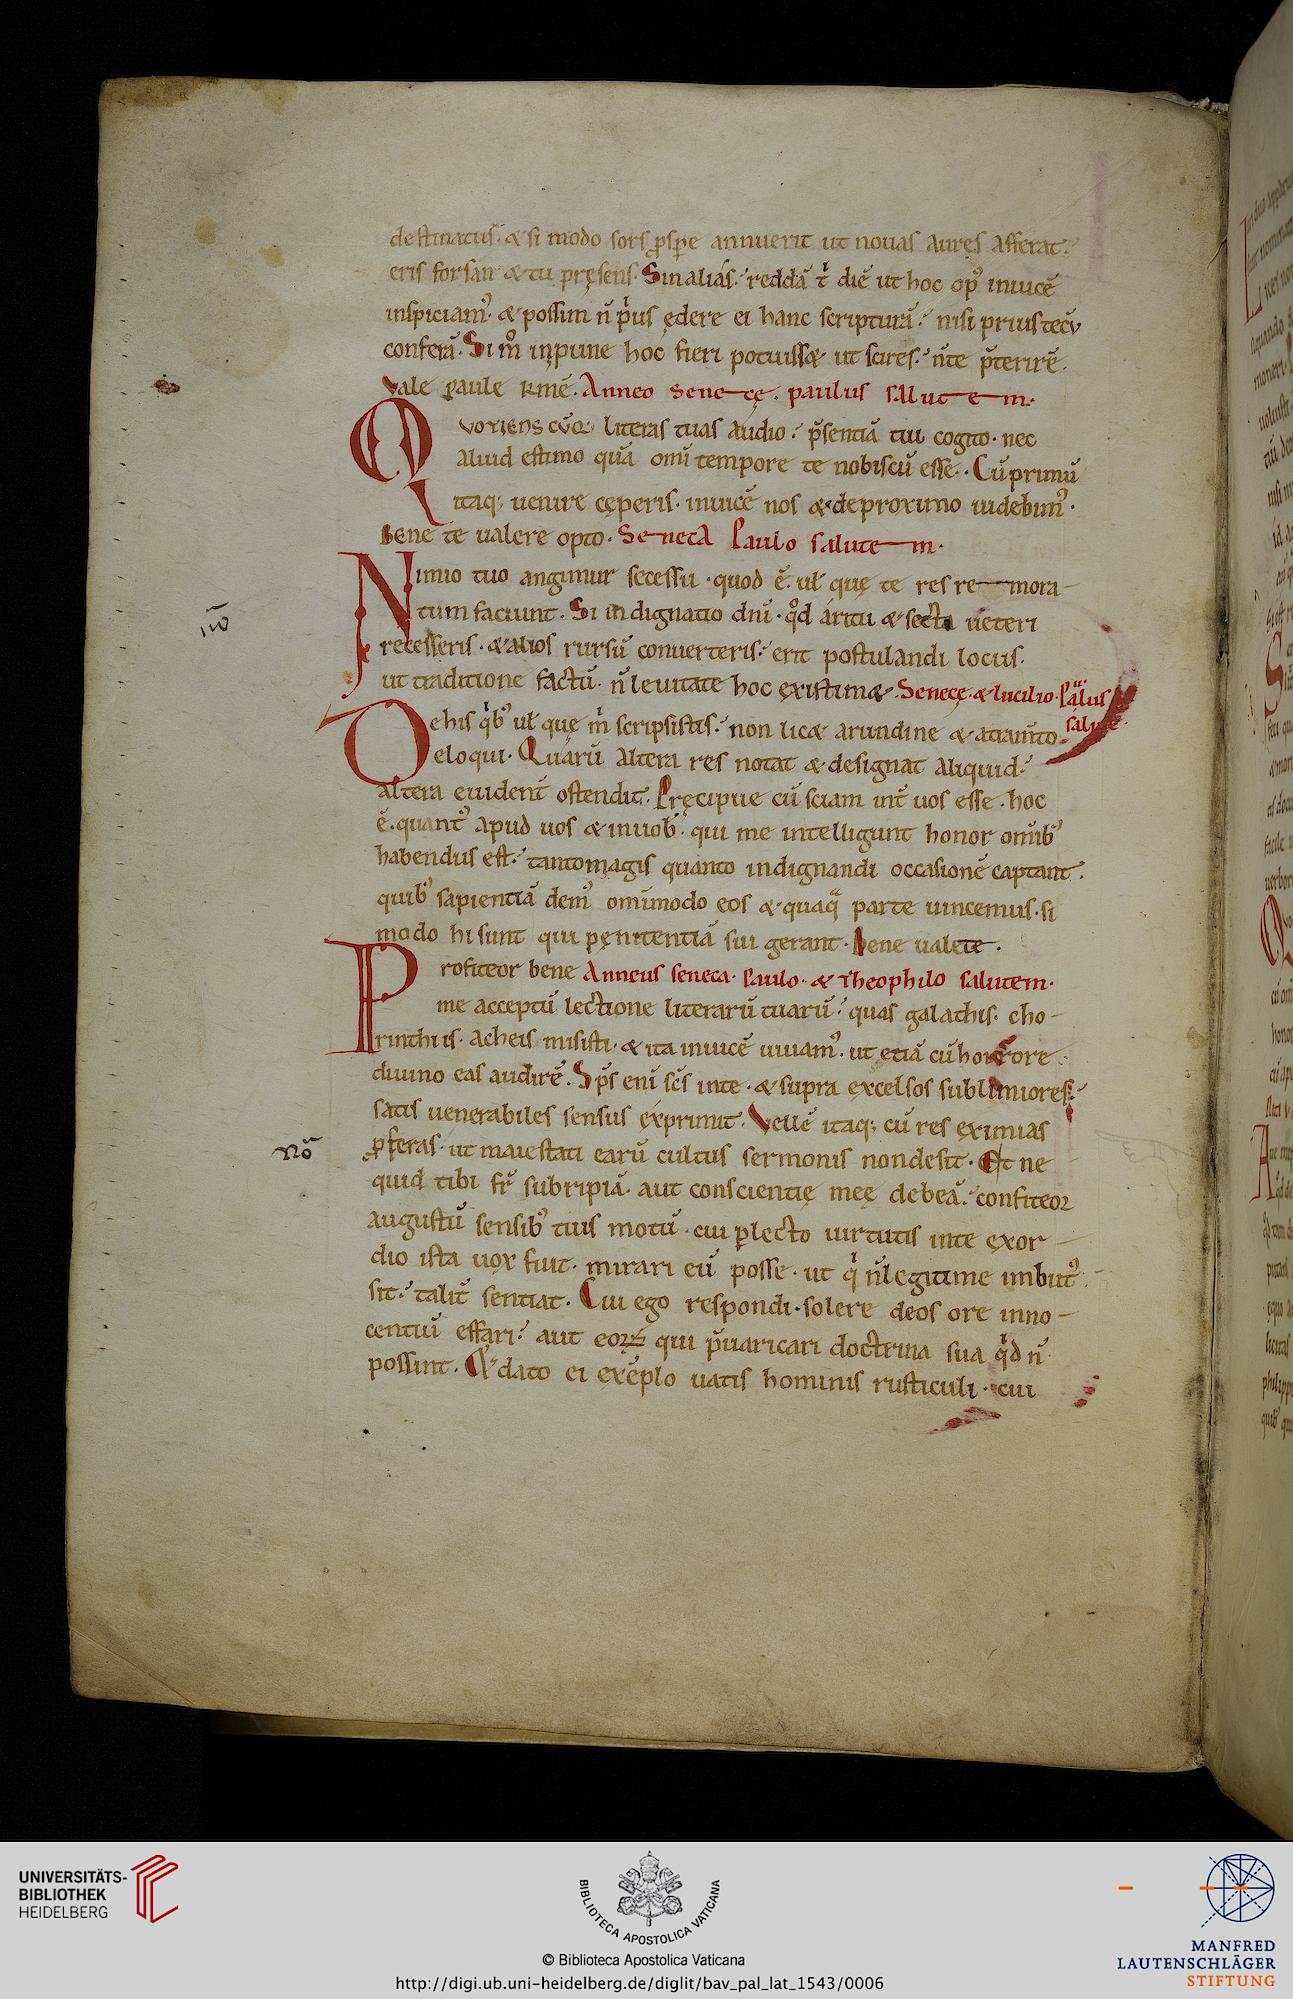 destinatus· & si modo sors ꝓsꝑe annuerit ut nouas aures afferat·
eris forsan & tu pręsens· Sin alias· reddā t̓ diē ut hoc opꝰ inuicē
inspiciamꝰ· & possim n̄ pͥus ędere ei hanc scripturā· nisi prius tecū
conferā· Si m̊ inpune hoc fieri potuiss& ut scires· n̄ te p̄terirē·
Vale paule kmē· Anneo Senecę· paulus salutem·
Quotienscūq; literas tuas audio· p̄sentiā tui cogito· nec
aliud estimo quā omī tempore te nobiscū esse· Cū primū
itaq; uenire cęperis· inuicē nos & de proximo uidebimꝰ·
Bene te ualere opto· Seneca Paulo salutem·
Nimio tuo angimur secessu· quod ē· ul̓ que te res remora-
tum faciunt· Si indignatio dn̄i· qd̊ a ritu & secta ueteri
recesseris· & alios rursū conuerteris· erit postulandi locus·
ut traditione factū· n̄ leuitate hoc existim&· Senecę & lucilio· Paulus
salute·
De his qͥbꝰ ul̓ que m̓ scripsistis· non lic& arundine & atram̄to
eloqui· Quarū altera res notat & designat aliquid·
altera euident̄ ostendit· Pręcipue cū sciam int̓ uos esse· hoc
ē· quantꝰ apud uos & in uob̄· qui me intelligunt honor omībꝰ
habendus est· tanto magis quanto indignandi occasionē captant·
quibꝰ sapientiā demꝰ omīmodo eos & quaqͣ parte uincemus· si
modo hi sunt qui pęnitentiā sui gerant· Bene ualete·
Profiteor bene Anneus seneca· Paulo· & Theophilo salutem·
me acceptū lectione literarū tuarū· quas galathis· cho-
rinthiis· acheis misisti· & ita inuicē uiuamꝰ· ut etiā cū horrore
diuino eas audirē· Sp̄s enī sc̄s in te· & supra excelsos sublimiores·
satis uenerabiles sensus exprimit· Vellē itaq; cū res eximias
ꝓferas· ut maiestati earū cultus sermonis non desit· Et ne
quid tibi fr̄ subripiā· aut conscientię męę debeā· confiteor
augustū sensibꝰ tuis motū· cui ꝑlecto uirtutis in te exor-
dio ista uox fuit· mirari eū posse· ut qͥ n̄ legitime imbutꝰ
sit· talit̓ sentiat· Cui ego respondi· solere deos ore inno-
centiū effari· aut eoꝝ qui p̄uaricari doctrina sua qͥd n̄
possint· & dato ei exēplo uatis hominis rusticuli· cui
nō
Nō
UNIVERSITÄTS-
BIBLIOTHEK
HEIDELBERG
BIBLIOTECA APOSTOLICA VATICANA
© Biblioteca Apostolica Vaticana
http://digi.ub.uni-heidelberg.de/diglit/bav_pal_lat_1543/0006
MANFRED
LAUTENSCHLÄGER
STIFTUNG